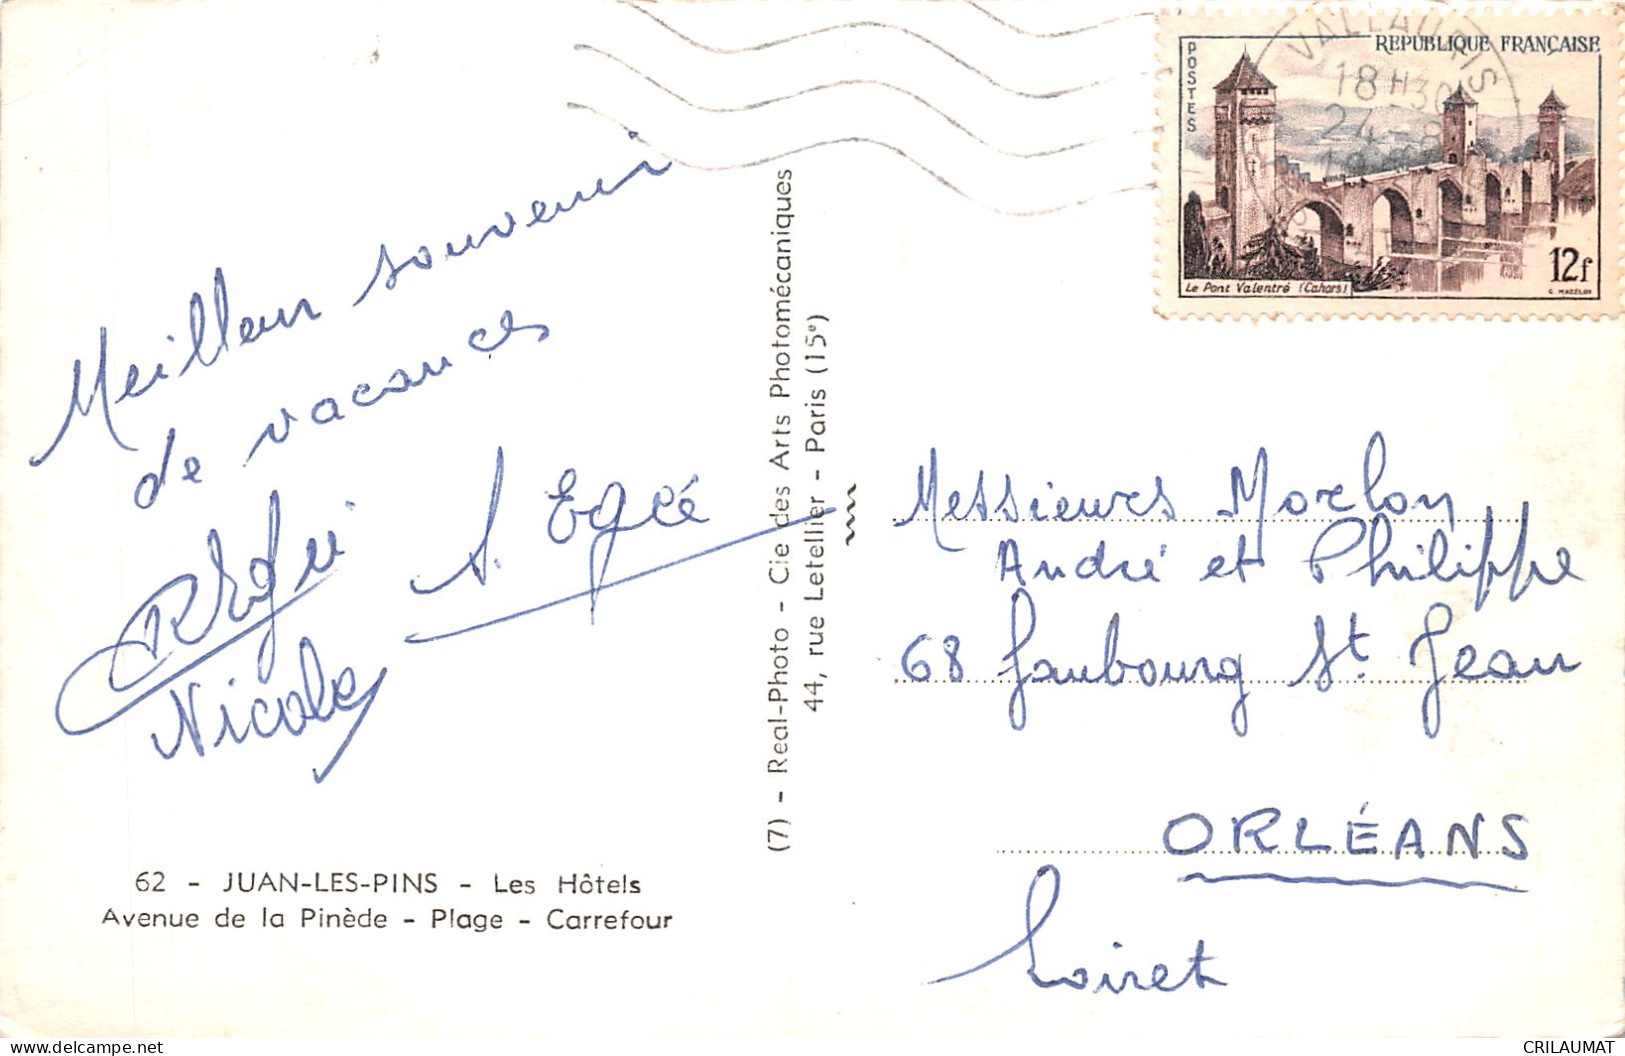 Meilleur souvenir
de vacances
Nicole
62 - JUAN-LES-PINS - Les Hôtels
Avenue de la Pinède - Plage - Carrefour
(7) - Real-Photo - Cie des Arts Photomécaniques
44, rue Letellier - Paris (15e)
VALLAURIS
18 H30
24-8
POSTES
REPUBLIQUE FRANÇAISE
Le Pont Valentré (Cahors)
12f
C. MAZELIN
Messieurs Morlon
André et Philippe
68 faubourg St. Jean
ORLÉANS
Loiret
www.delcampe.net
CRILAUMAT